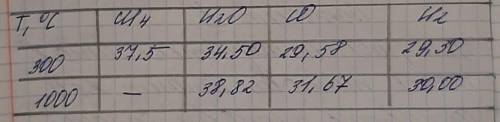 T, °C CH4 H2O CO H2
300 37,5 34.50 29,58 29,30
1000 — 38,82 31,67 30,00